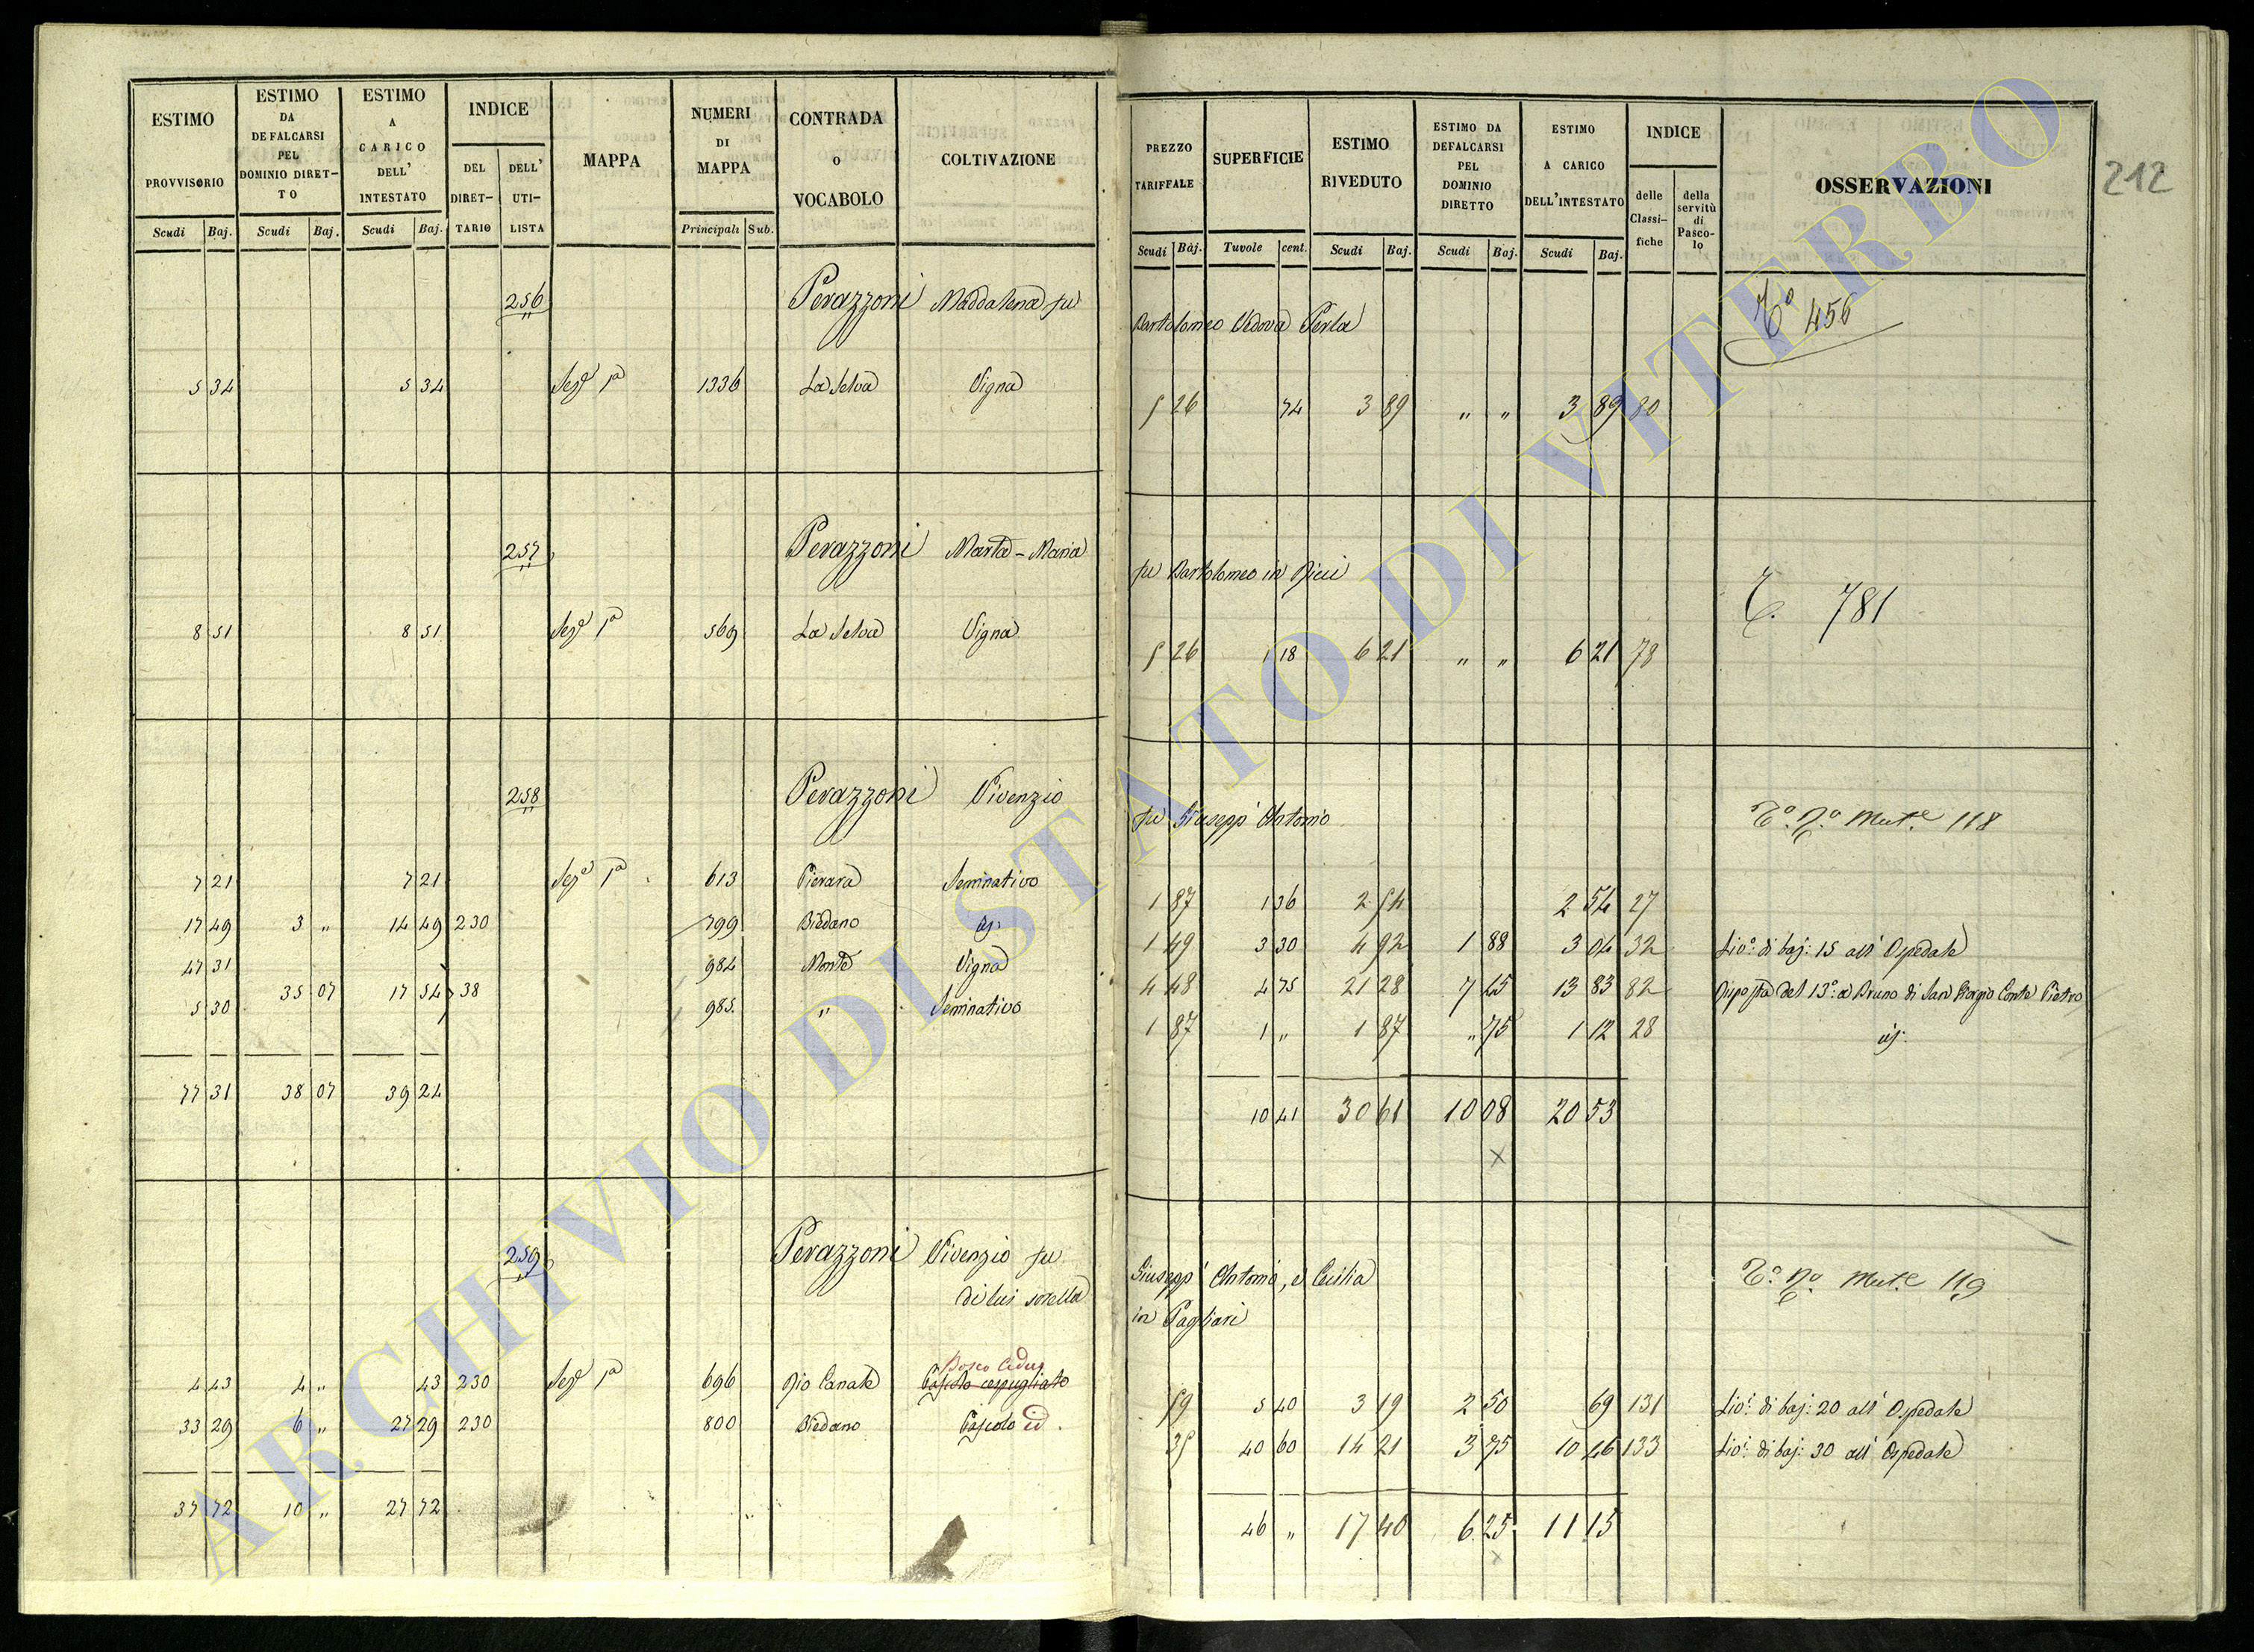 ESTIMO PROVVISORIO Scudi Baj.
ESTIMO DA DEFALCARSI PEL DOMINIO DIRETTO Scudi Baj.
ESTIMO A CARICO DELL' INTESTATO Scudi Baj.
INDICE DEL DIRETTARIO DELL' UTILISTA
MAPPA
NUMERI DI MAPPA Principali Sub.
CONTRADA o VOCABOLO
COLTIVAZIONE
PREZZO TARIFFALE Scudi Baj.
SUPERFICIE Tuvole cent.
ESTIMO RIVEDUTO Scudi Baj.
ESTIMO DA DEFALCARSI PEL DOMINIO DIRETTO Scudi Baj.
ESTIMO A CARICO DELL'INTESTATO Scudi Baj.
INDICE delle Classifiche della servitù di Pascolo
OSSERVAZIONI
212
256 Perazzoni Maddalena fu Bartolomeo Vedova Perla 456
5 34 5 34 Sez.e 1a 1336 La Selva Vigna 5 26 74 3 89 " " 3 89 80
257 Perazzoni Marta-Maria fu Bartolomeo in Ricci 781
8 51 8 51 Sez.e 1a 569 La Selva Vigna 5 26 1 18 6 21 " " 6 21 78
258 Perazzoni Vivenzio fu Giusepp' Antonio 118
7 21 7 21 Sez.e 1a 613 Pierara Seminativo 1 87 1 36 2 54 2 54 27
17 49 3 " 14 49 230 799 Biedano id. 1 49 3 30 4 92 1 88 3 04 32 Liv.o di baj: 15 all' Ospedale
47 31 984 Monte Vigna 4 48 4 75 21 28 7 45 13 83 82 Risposta del 13.o a Bruno di San Giorgio Conte Pietro
35 07 17 54 38
5 30 985 " Seminativo 1 87 1 " 1 87 " 75 1 12 28 id.
77 31 38 07 39 24 10 41 30 61 10 08 20 53
x
259 Perazzoni Vivenzio fu Giusepp' Antonio, e Cecilia 119
di lui sorella in Pagliari
Bosco Ceduo
4 43 4 " 43 230 Sez.e 1a 696 Rio Canale Pascolo cespugliato 59 5 40 3 19 2 50 69 131 Liv.o di baj: 20 all' Ospedale
33 29 6 " 27 29 230 800 Biedano Pascolo id. 35 40 60 14 21 3 75 10 46 133 Liv.o di baj: 30 all' Ospedale
37 72 10 " 27 72 46 " 17 40 6 25 11 15
x
ARCHIVIO DI STATO DI VITERBO